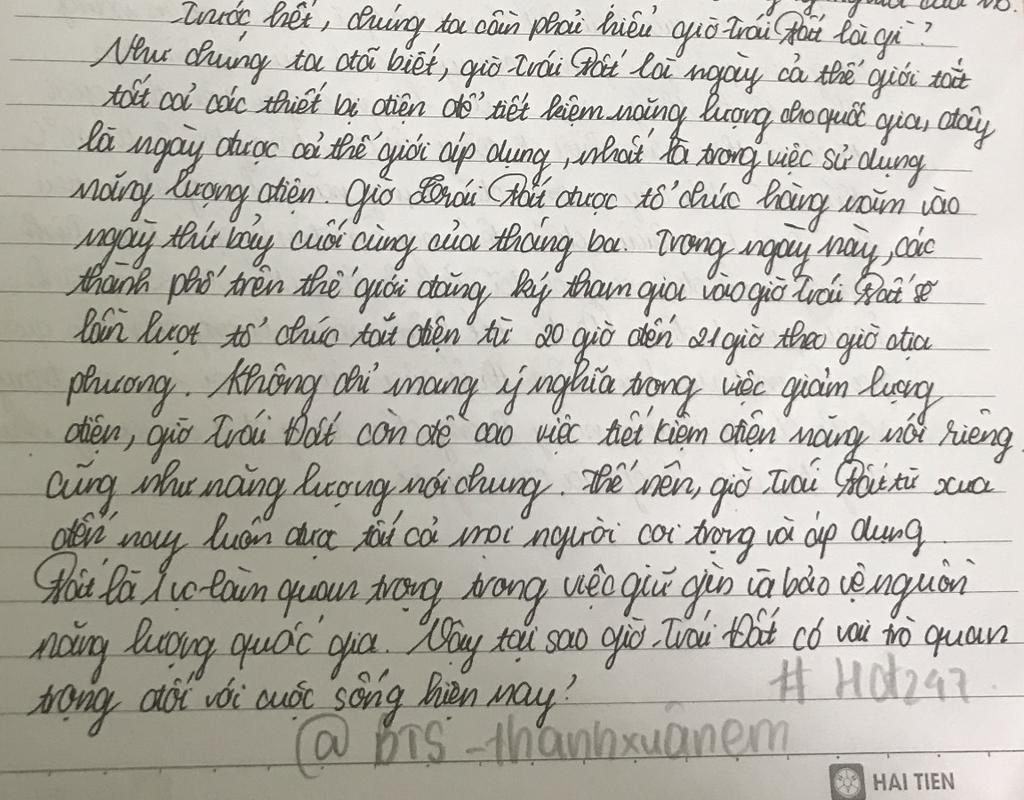 Trước hết, chúng ta cần phải hiểu giờ Trái Đất là gì?
Như chúng ta đã biết, giờ Trái Đất là ngày cả thế giới tắt
tất cả các thiết bị điện để tiết kiệm năng lượng cho quốc gia, đây
là ngày được cả thế giới áp dụng, nhất là trong việc sử dụng
năng lượng điện. Giờ Trái Đất được tổ chức hàng năm vào
ngày thứ bảy cuối cùng của tháng ba. Trong ngày này, các
thành phố trên thế giới đăng ký tham gia vào giờ Trái Đất sẽ
lần lượt tổ chức tắt điện từ 20 giờ đến 21 giờ theo giờ địa
phương. Không chỉ mang ý nghĩa trong việc giảm lượng
điện, giờ Trái Đất còn đề cao việc tiết kiệm điện năng nói riêng
cũng như năng lượng nói chung. Thế nên, giờ Trái Đất từ xưa
đến nay luôn được tất cả mọi người coi trọng và áp dụng.
Đất là 1 việc làm quan trọng trong việc giữ gìn và bảo vệ nguồn
năng lượng quốc gia. Vậy tại sao giờ Trái Đất có vai trò quan
trọng đối với cuộc sống hiện nay?
# Hd247
@ BTS_thanhxuânem
HAI TIEN